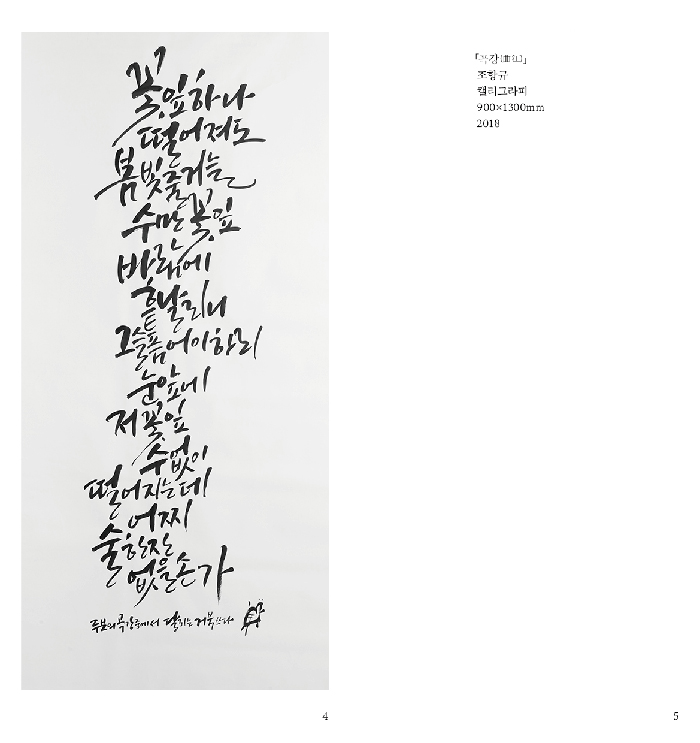 꽃잎 하나
떨어져도
봄빛 줄거늘
수만 꽃잎
바람에
흩날리니
그 슬픔 어이하리
눈앞에
저 꽃잎
수없이
떨어지는데
어찌
술 한잔
없을손가
두보의 곡강 중에서 달리는 거북이라
「곡강(曲江)」
조항규
캘리그라피
900×1300mm
2018
4
5